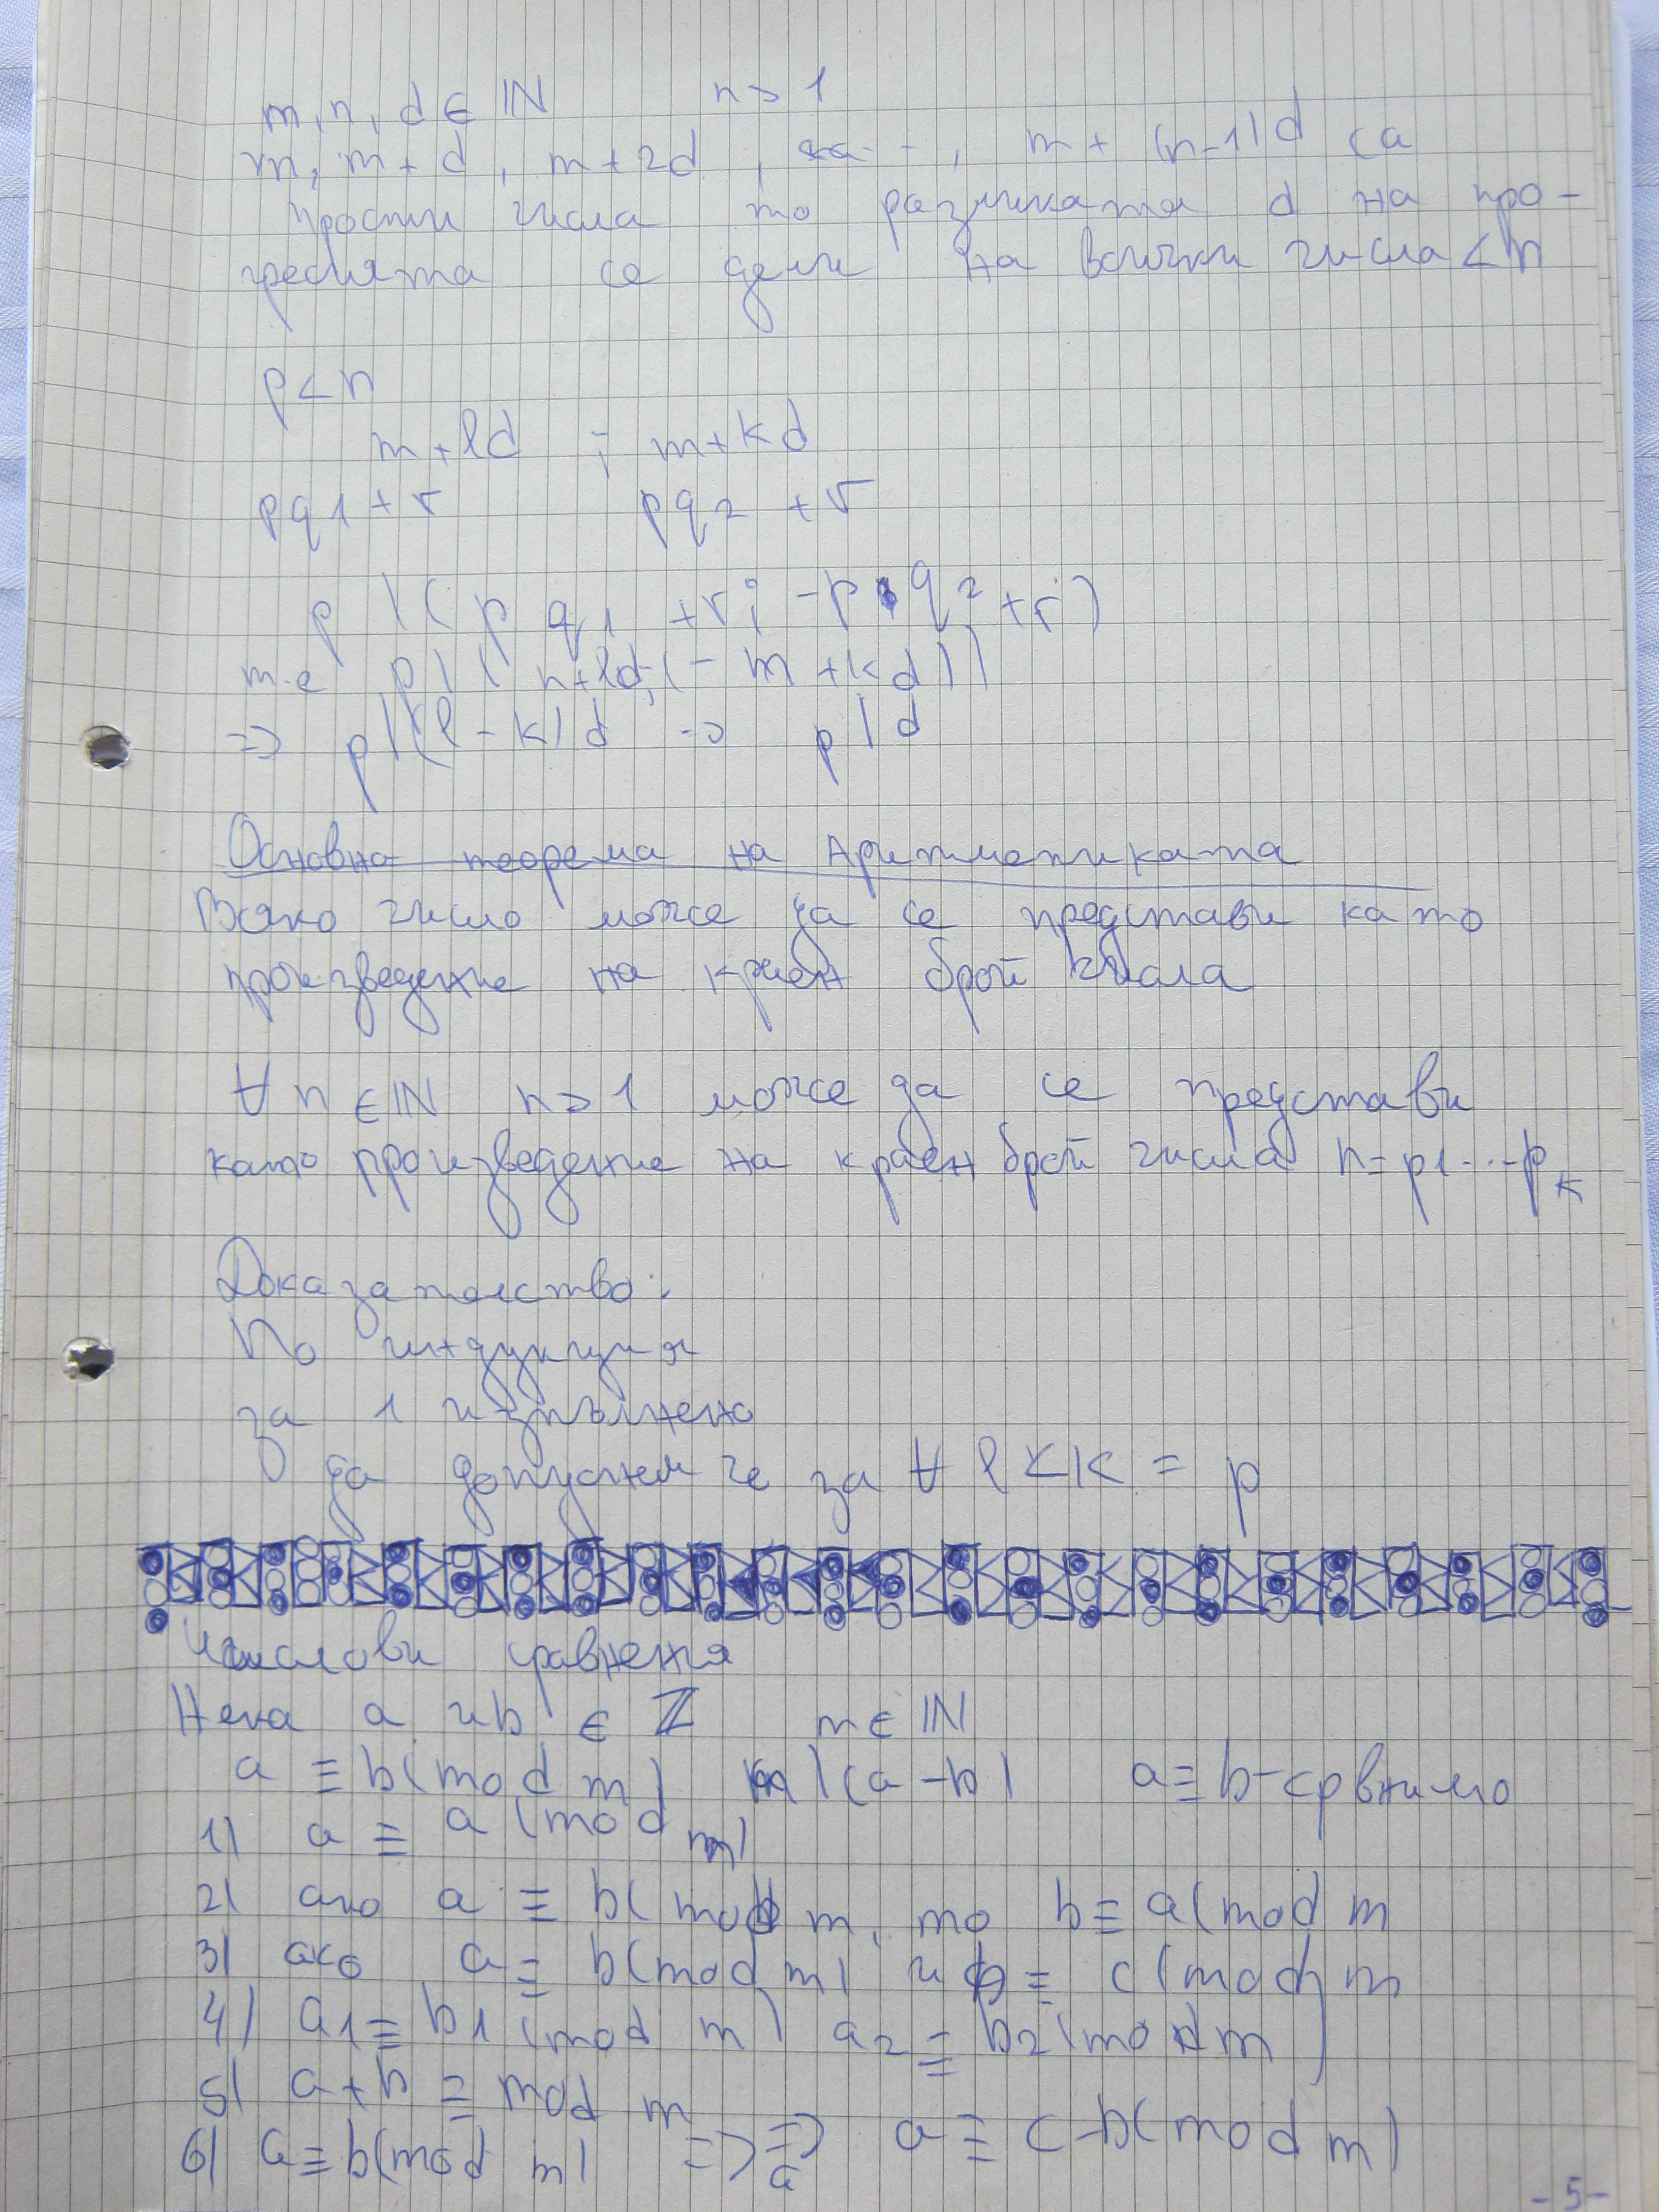 m, n, d ∈ ℕ n > 1
m, m + d, m + 2d, ..., m + (n-1)d са
прости числа то разликата d на про-
гресията се дели на всички числа < n
p < n
m + ld ; m + kd
pq1 + r pq2 + r
p | (pq1 + r; - p q2 + r)
т.е p | ( n+ld; (- m + kd))
=> p|(l - k)d => p|d
Основна теорема на Аритметиката
Всяко число може да се представи като
произведение на краен брой числа
∀ n ∈ ℕ n > 1 може да се представи
като произведение на краен брой числа n = p1...pk
Доказателство:
По индукция
за 1 изпълнено
да допуснем че за ∀ l < k = p
Числови сравнения
Нека a и b ∈ ℤ m ∈ ℕ
a ≡ b(mod m) m|(a-b) a ≡ b - срвнимо
1) a ≡ a (mod m)
2) ако a ≡ b(mod m, то b ≡ a(mod m
3) ако a ≡ b(mod m) и b ≡ c(mod m
4) a1 ≡ b1 (mod m) a2 ≡ b2(mod m)
5) a + b ≡ mod m
6) a ≡ b(mod m) => => a ≡ c-b(mod m)
a
-5-